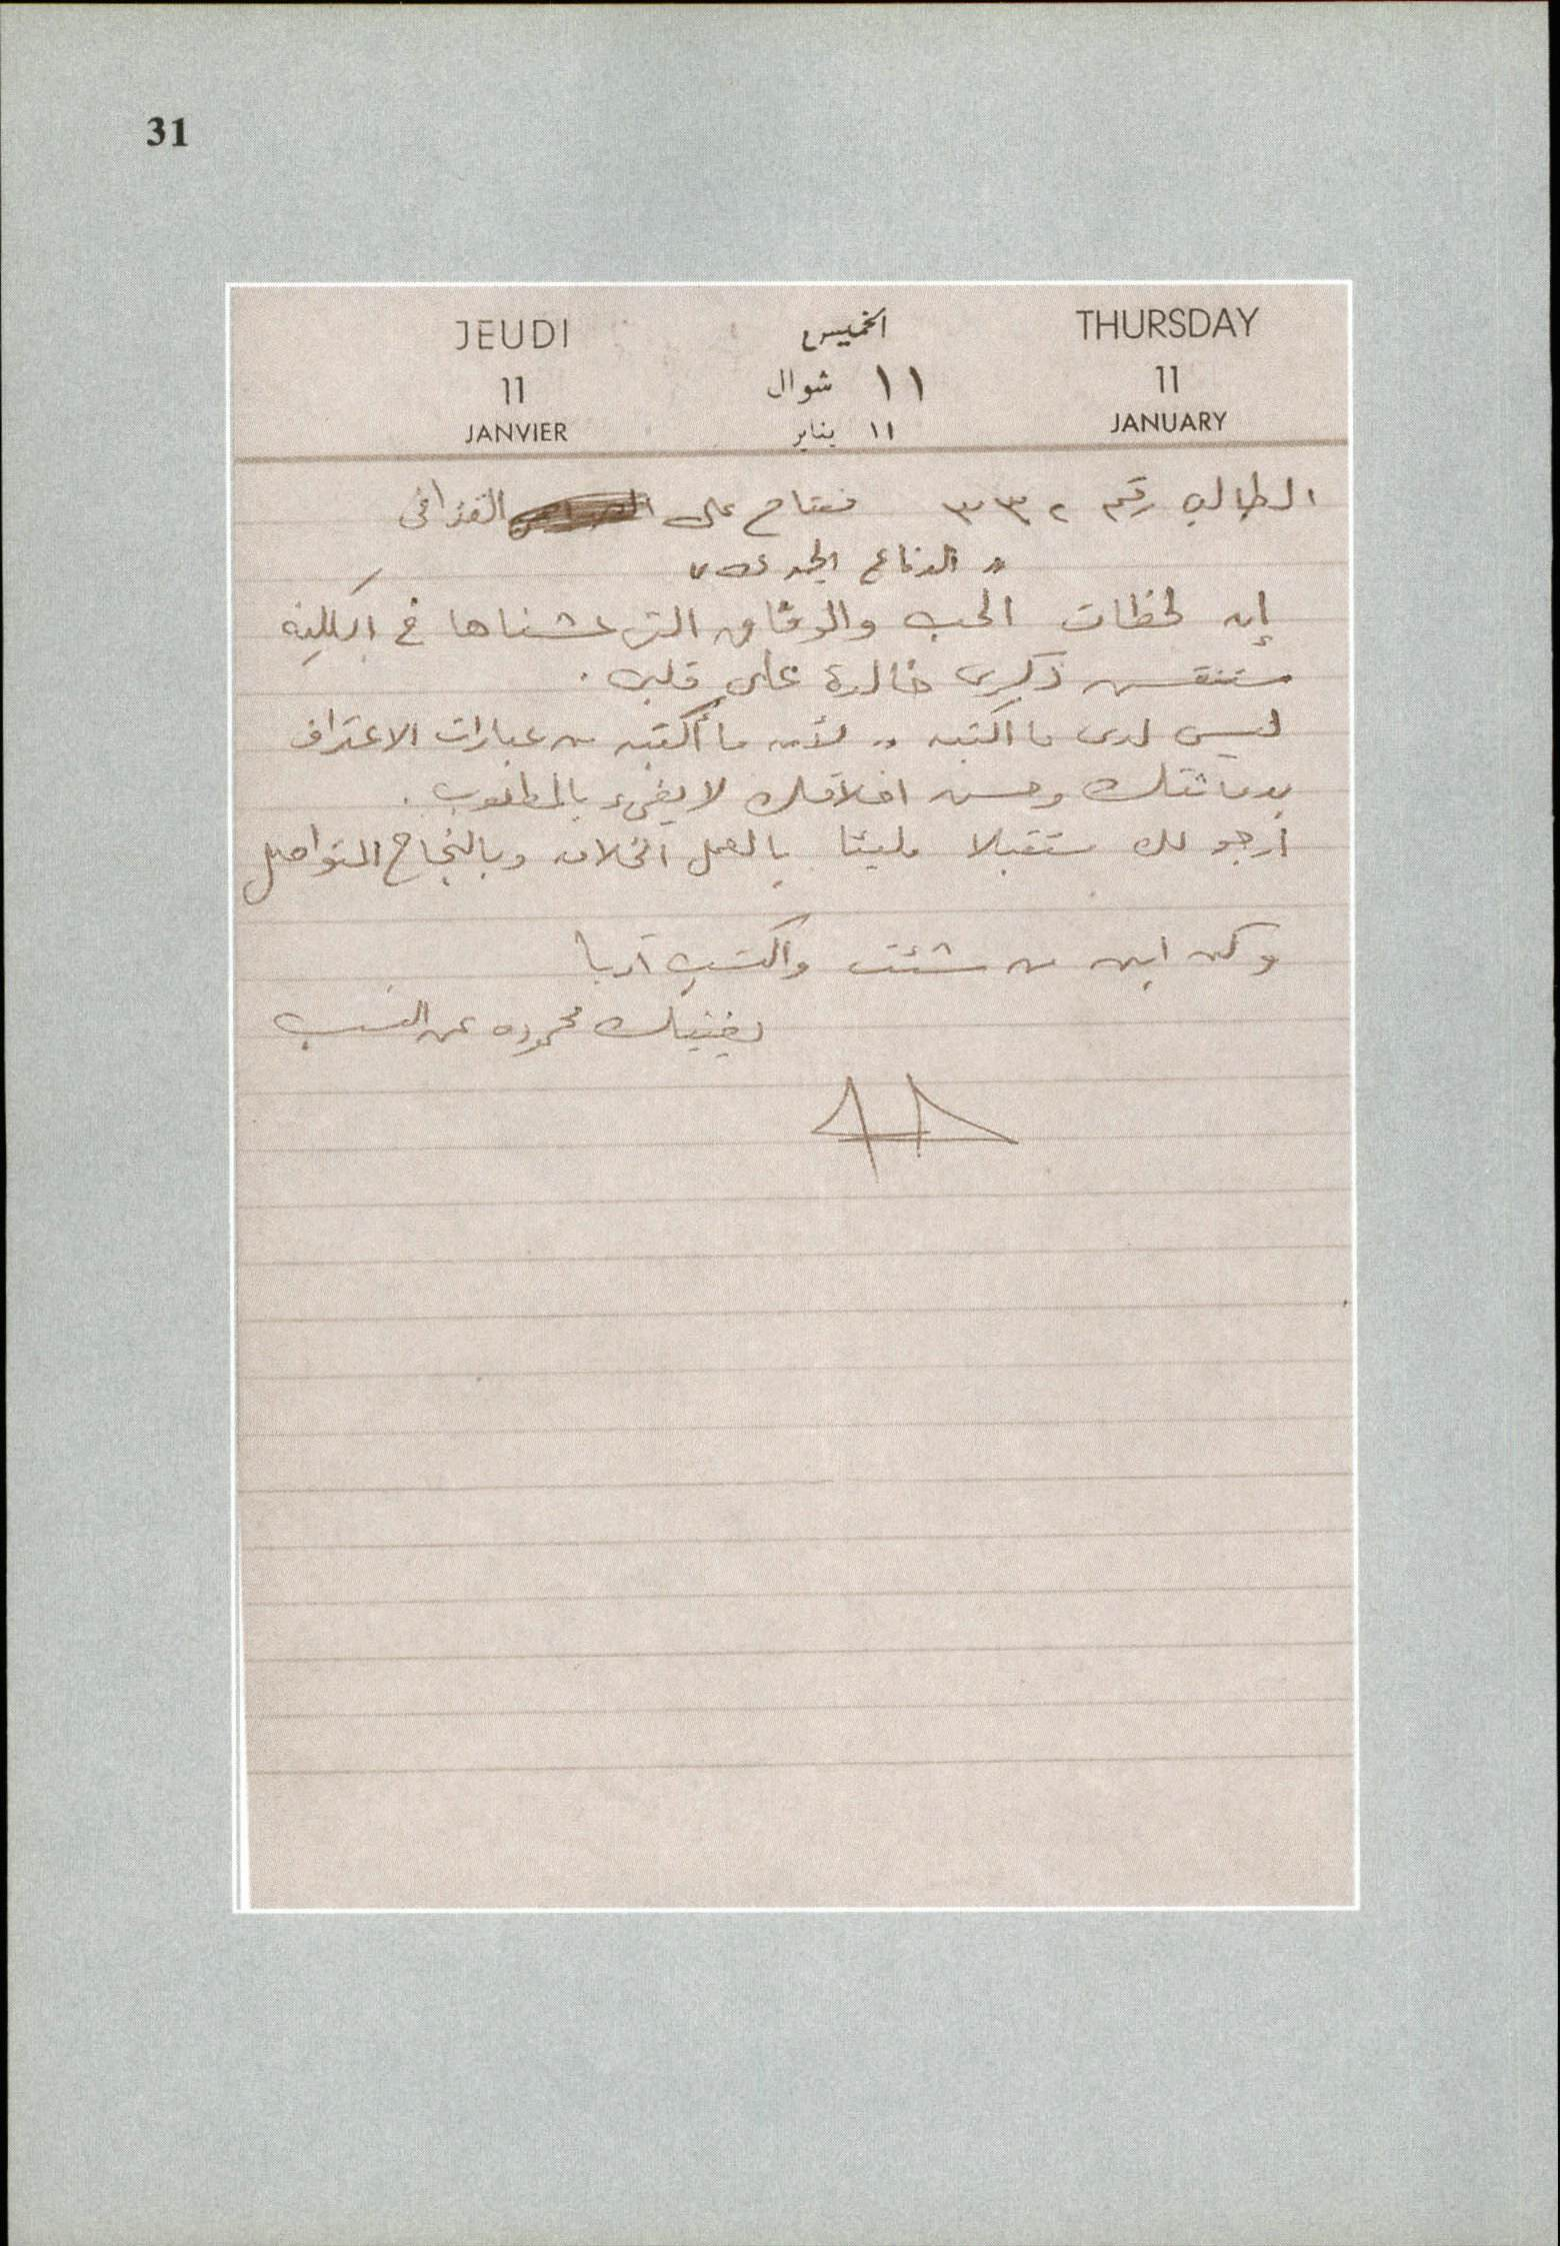 31
JEUDI الخميس THURSDAY
11 ١١ شوال 11
JANVIER ١١ يناير JANUARY
الطالب رقم ٣٣٢ مفتاح على القذافى
" الدفاع الجوى "
إن لحظات الحب والوفاق التى عشناها فى الكلية
ستنقش ذكرى خالدة على قلبى .
ليس لدى ما اكتبه .. لأن ما أكتبه من عبارات الاعتراف
بدماثتك وحسن اخلاقك لا يفىء بالمطلوب .
أرجو لك مستقبلا مليئا بالعمل الخلاق وبالنجاح المتواصل
وكن ابن من شئت واكتسب أدبا
يغنيك محموده عن النسب